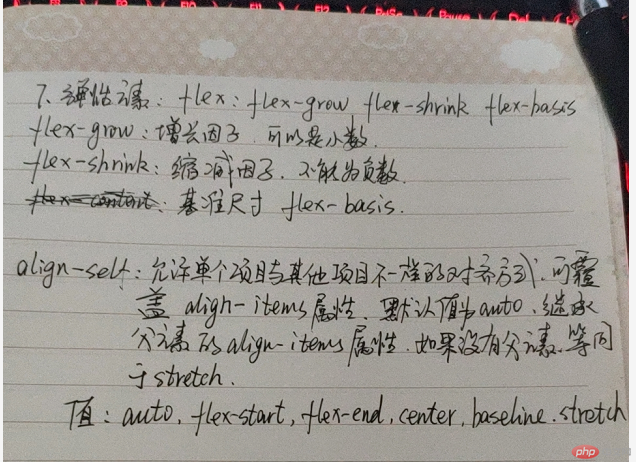 F10 F11 F12 PdSc Pause Del
7. 弹性元素: flex: flex-grow flex-shrink flex-basis
flex-grow: 增长因子, 可以是小数.
flex-shrink: 缩减因子. 不能为负数.
flex-content: 基准尺寸 flex-basis.
align-self: 允许单个项目与其他项目不一样的对齐方式. 可覆
盖 align-items属性. 默认值为auto. 继承
父元素的align-items属性. 如果没有父元素, 等同
于stretch.
值: auto, flex-start, flex-end, center, baseline. stretch
php